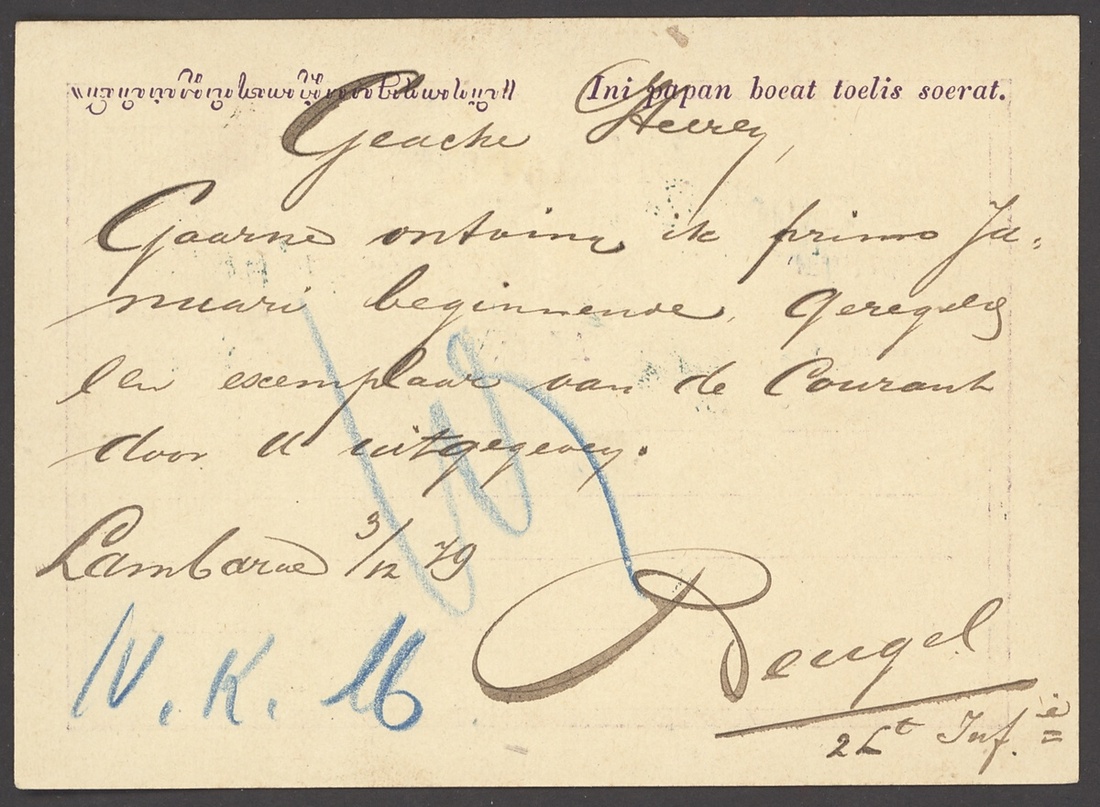 Ini papan boeat toelis soerat.
Geachte Heeren,
Gaarne ontving ik primo Ja-
nuari beginnende, geregeld
een exemplaar van de Courant
door U uitgegeven.
Lambaroe 3/12 79
W. K. 16
Reugel
2 Lt Inf.ie